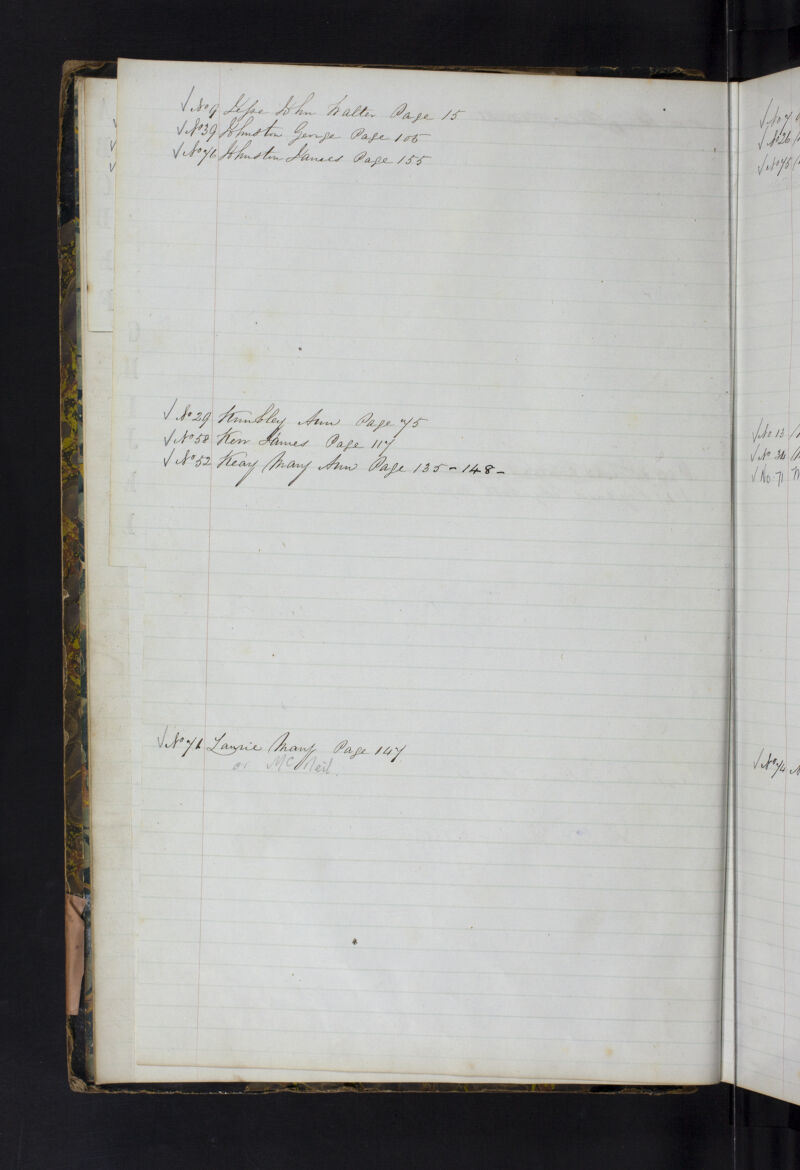 √ No 9 John Walter Page 15
√ No 39 Johnston George Page 105
√ No 76 Johnston James Page 155
√ No 29 Kimbley Ann Page 75
√ No 58 Kerr James Page 117
√ No 52 Keay Mary Ann Page 135 - 148 -
√ No 71 Laurie Mary Page 147
or McNeil.
√ No 7
√ No 26
√ No 75
√ No 13
√ No 36
√ No. 71
√ No 74